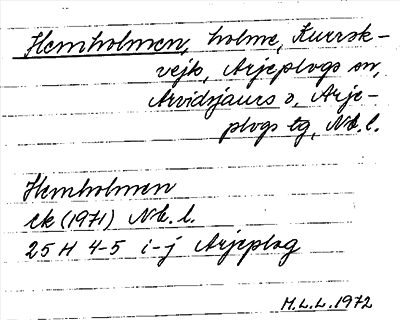 Hemholmen, holme, Kurrok-
vejk, Arjeplogs sn,
Arvidsjaurs o, Arje-
plogs tg, Nb. l.
Hemholmen
Ek (1971) Nb. l.
25 H 4-5 i-j Arjeplog
M.L.L. 1972